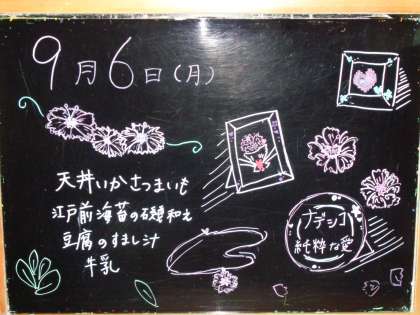 9月6日(月)
天丼いかさつまいも
江戸前海苔の磯和え
豆腐のすまし汁
牛乳
ナデシコ
純粋な愛